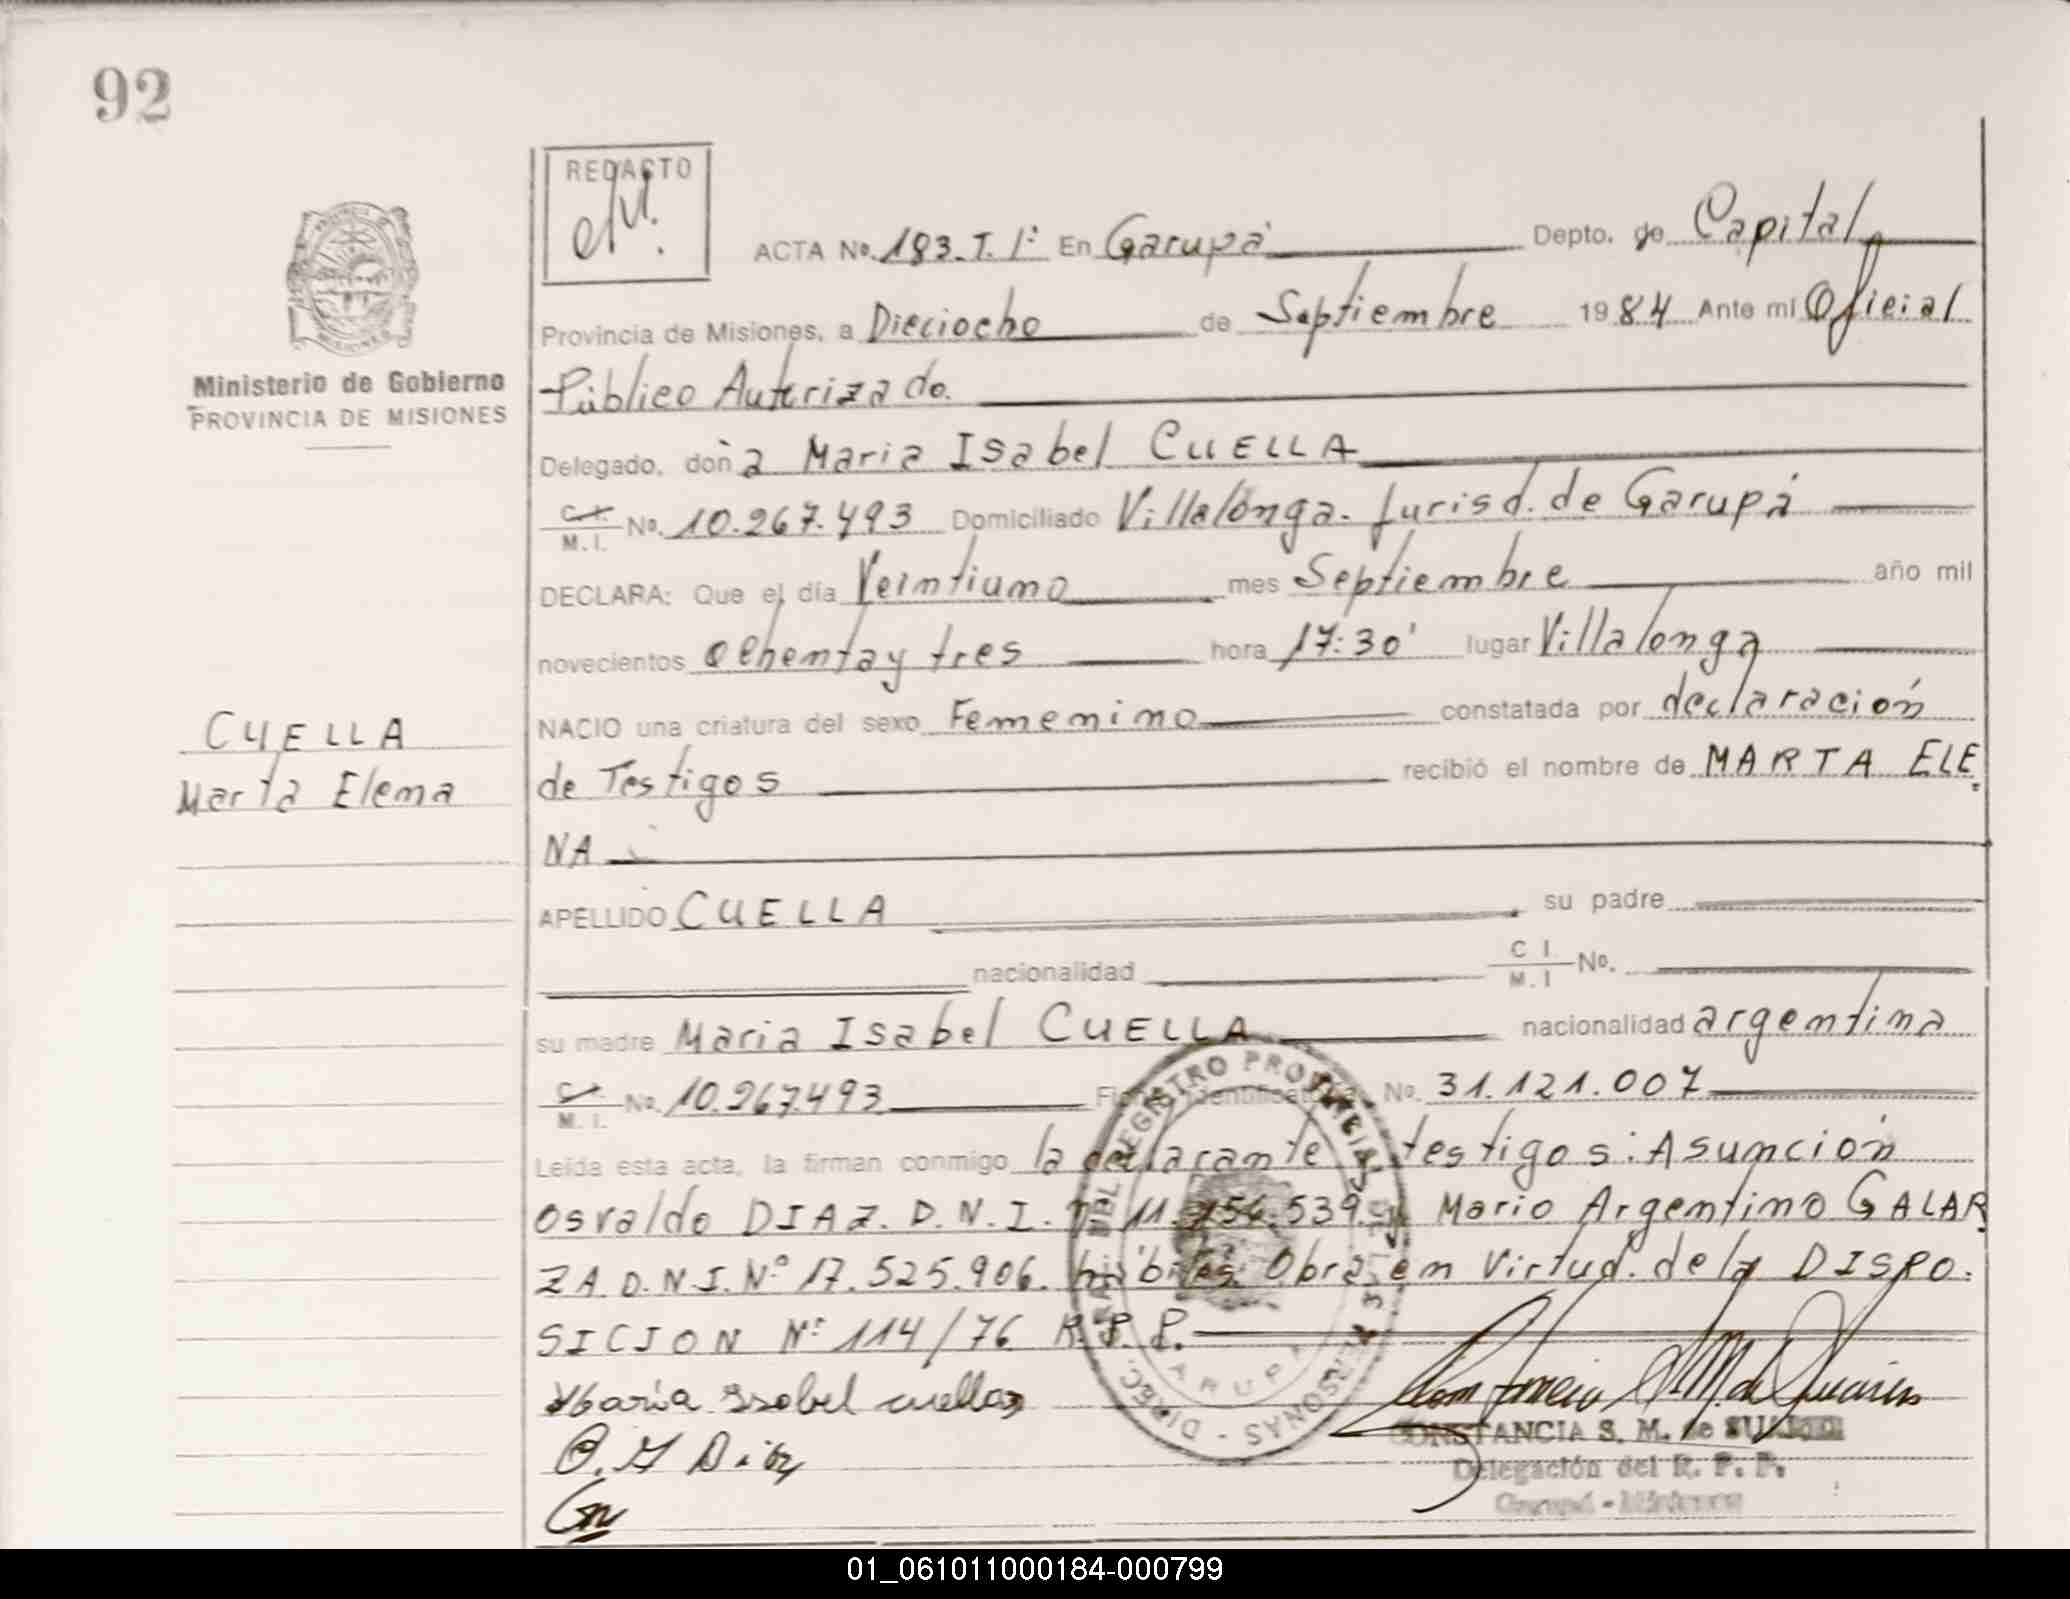 92
REDACTO
ACTA No. 183. T. 1º En Garupá Depto. de Capital
Provincia de Misiones, a Dieciocho de Septiembre 1984 Ante mi Oficial
Público Autorizado.
Ministerio de Gobierno
PROVINCIA DE MISIONES
Delegado, doña Maria Isabel CUELLA
C.I. M.I. No. 10.267.493 Domiciliado Villalonga. Jurisd. de Garupá
DECLARA: Que el día Veintiuno mes Septiembre año mil
novecientos Ochenta y tres hora 17:30' lugar Villalonga
NACIO una criatura del sexo Femenino constatada por declaración
CUELLA
Marta Elena
de Testigos recibió el nombre de MARTA ELE
NA
APELLIDO CUELLA su padre
nacionalidad C I. M.I No.
su madre Maria Isabel CUELLA nacionalidad argentina
C.I. M.I. No. 10.267.493 Ficha Identificatoria No. 31.121.007
Leída esta acta, la firman conmigo la declarante testigos: Asunción
Osvaldo DIAZ. D.N.I. 539 y Mario Argentino GALAR
ZA. D.N.I. Nº 17.525.906. hábiles. Obra en Virtud. de la DISPO.
SICION Nº 114/76 R.P.P.
Maria Isabel cuella
O. Diaz
CONSTANCIA S. M. de
Delegación del R. P. P.
Garupá - Misiones
DIREC. GRAL. DEL REGISTRO PROVINCIAL DE LAS PERSONAS -
GARUPA
01_061011000184-000799